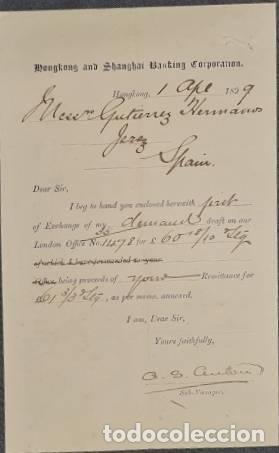 Hongkong and Shanghai Banking Corporation.
Hongkong, 1 Ape 1899
Messrs Gutierrez Hermanos
Jerez
Spain.
Dear Sir,
I beg to hand you enclosed herewith first
of Exchange of my demand draft on our
London Office No. 1478 for £60.18/10 Stg
of which I have remanded to your
Office being proceeds of your Remittance for
£61.3/3d Stg, as per memo. annexed.
I am, Dear Sir,
Yours faithfully,
Sub-Manager.
todocoleccion